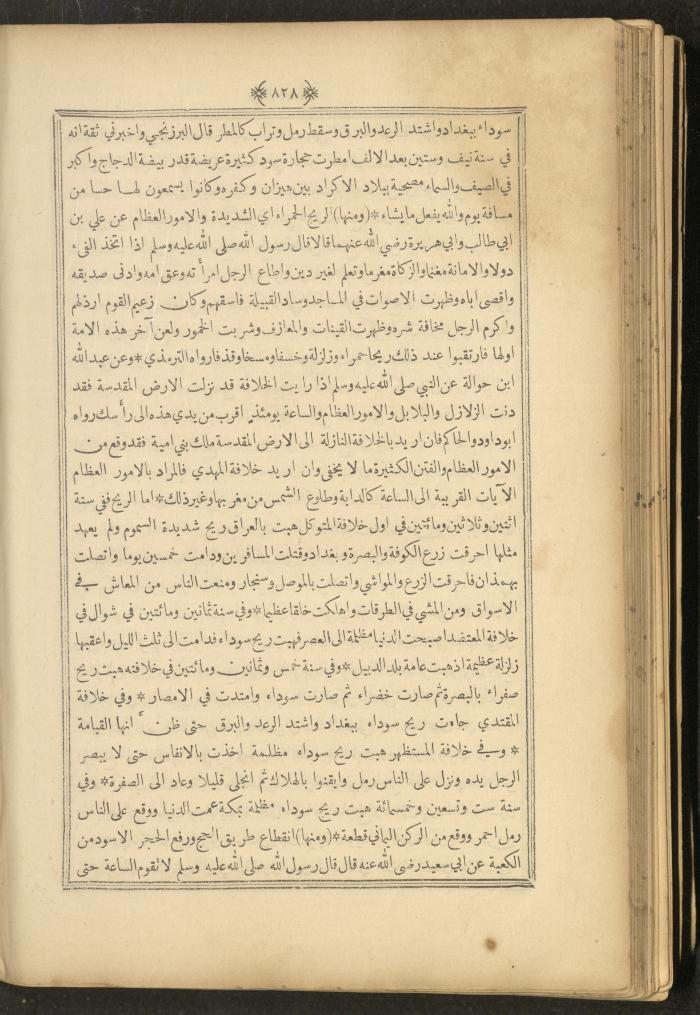 ٨٢٨
سوداء ببغداد واشتد الرعد والبرق وسقط رمل وتراب كالمطر قال البرزنجي واخبرني ثقة انه
في سنة نيف وستين بعد الالف امطرت حجارة سود كثيرة عريضة قدر بيضة الدجاج واكبر
في الصيف والسماء مصحية ببلاد الاكراد بين هيزان وكفره وكانوا يسمعون لها حسا من
مسافة يوم والله يفعل ما يشاء * (ومنها) الريح الحمراء اي الشديدة والامور العظام عن علي بن
ابي طالب وابي هريرة رضي الله عنهما قالا قال رسول الله صلى الله عليه وسلم اذا اتخذ الفيء
دولا والامانة مغنما والزكاة مغرما وتعلم لغير دين واطاع الرجل امرأته وعق امه وادنى صديقه
واقصى اباه وظهرت الاصوات في المساجد وساد القبيلة فاسقهم وكان زعيم القوم ارذلهم
واكرم الرجل مخافة شره وظهرت القينات والمعازف وشربت الخمور ولعن آخر هذه الامة
اولها فارتقبوا عند ذلك ريحا حمراء وزلزلة وخسفا ومسخا وقذفا رواه الترمذي * وعن عبد الله
ابن حوالة عن النبي صلى الله عليه وسلم اذا رايت الخلافة قد نزلت الارض المقدسة فقد
دنت الزلازل والبلابل والامور العظام والساعة يومئذ اقرب من يدي هذه الى رأسك رواه
ابو داود والحاكم فان اريد بالخلافة النازلة الى الارض المقدسة ملك بني امية فقد وقع من
الامور العظام والفتن الكثيرة ما لا يخفى وان اريد خلافة المهدي فالمراد بالامور العظام
الآيات القريبة الى الساعة كالدابة وطلوع الشمس من مغربها وغير ذلك * اما الريح ففي سنة
اثنين وثلاثين ومائتين في اول خلافة المتوكل هبت بالعراق ريح شديدة السموم ولم يعهد
مثلها احرقت زرع الكوفة والبصرة وبغداد وقتلت المسافرين ودامت خمسين يوما واتصلت
بهمذان فاحرقت الزرع والمواشي واتصلت بالموصل وسنجار ومنعت الناس من المعاش في
الاسواق ومن المشي في الطرقات واهلكت خلقا عظيما * وفي سنة ثمانين ومائتين في شوال في
خلافة المعتضد اصبحت الدنيا مظلمة الى العصر فهبت ريح سوداء فدامت الى ثلث الليل واعقبها
زلزلة عظيمة اذهبت عامة بلد الدبيل * وفي سنة خمس وثمانين ومائتين في خلافته هبت ريح
صفراء بالبصرة ثم صارت خضراء ثم صارت سوداء وامتدت في الامصار * وفي خلافة
المقتدي جاءت ريح سوداء ببغداد واشتد الرعد والبرق حتى ظن انها القيامة
* وفي خلافة المستظهر هبت ريح سوداء مظلمة اخذت بالانفاس حتى لا يبصر
الرجل يده ونزل على الناس رمل وايقنوا بالهلاك ثم انجلى قليلا وعاد الى الصفرة * وفي
سنة ست وتسعين وخمسمائة هبت ريح سوداء مظلمة بمكة عمت الدنيا ووقع على الناس
رمل احمر ووقع من الركن اليماني قطعة * (ومنها) انقطاع طريق الحج ورفع الحجر الاسود من
الكعبة عن ابي سعيد رضى الله عنه قال قال رسول الله صلى الله عليه وسلم لا تقوم الساعة حتى